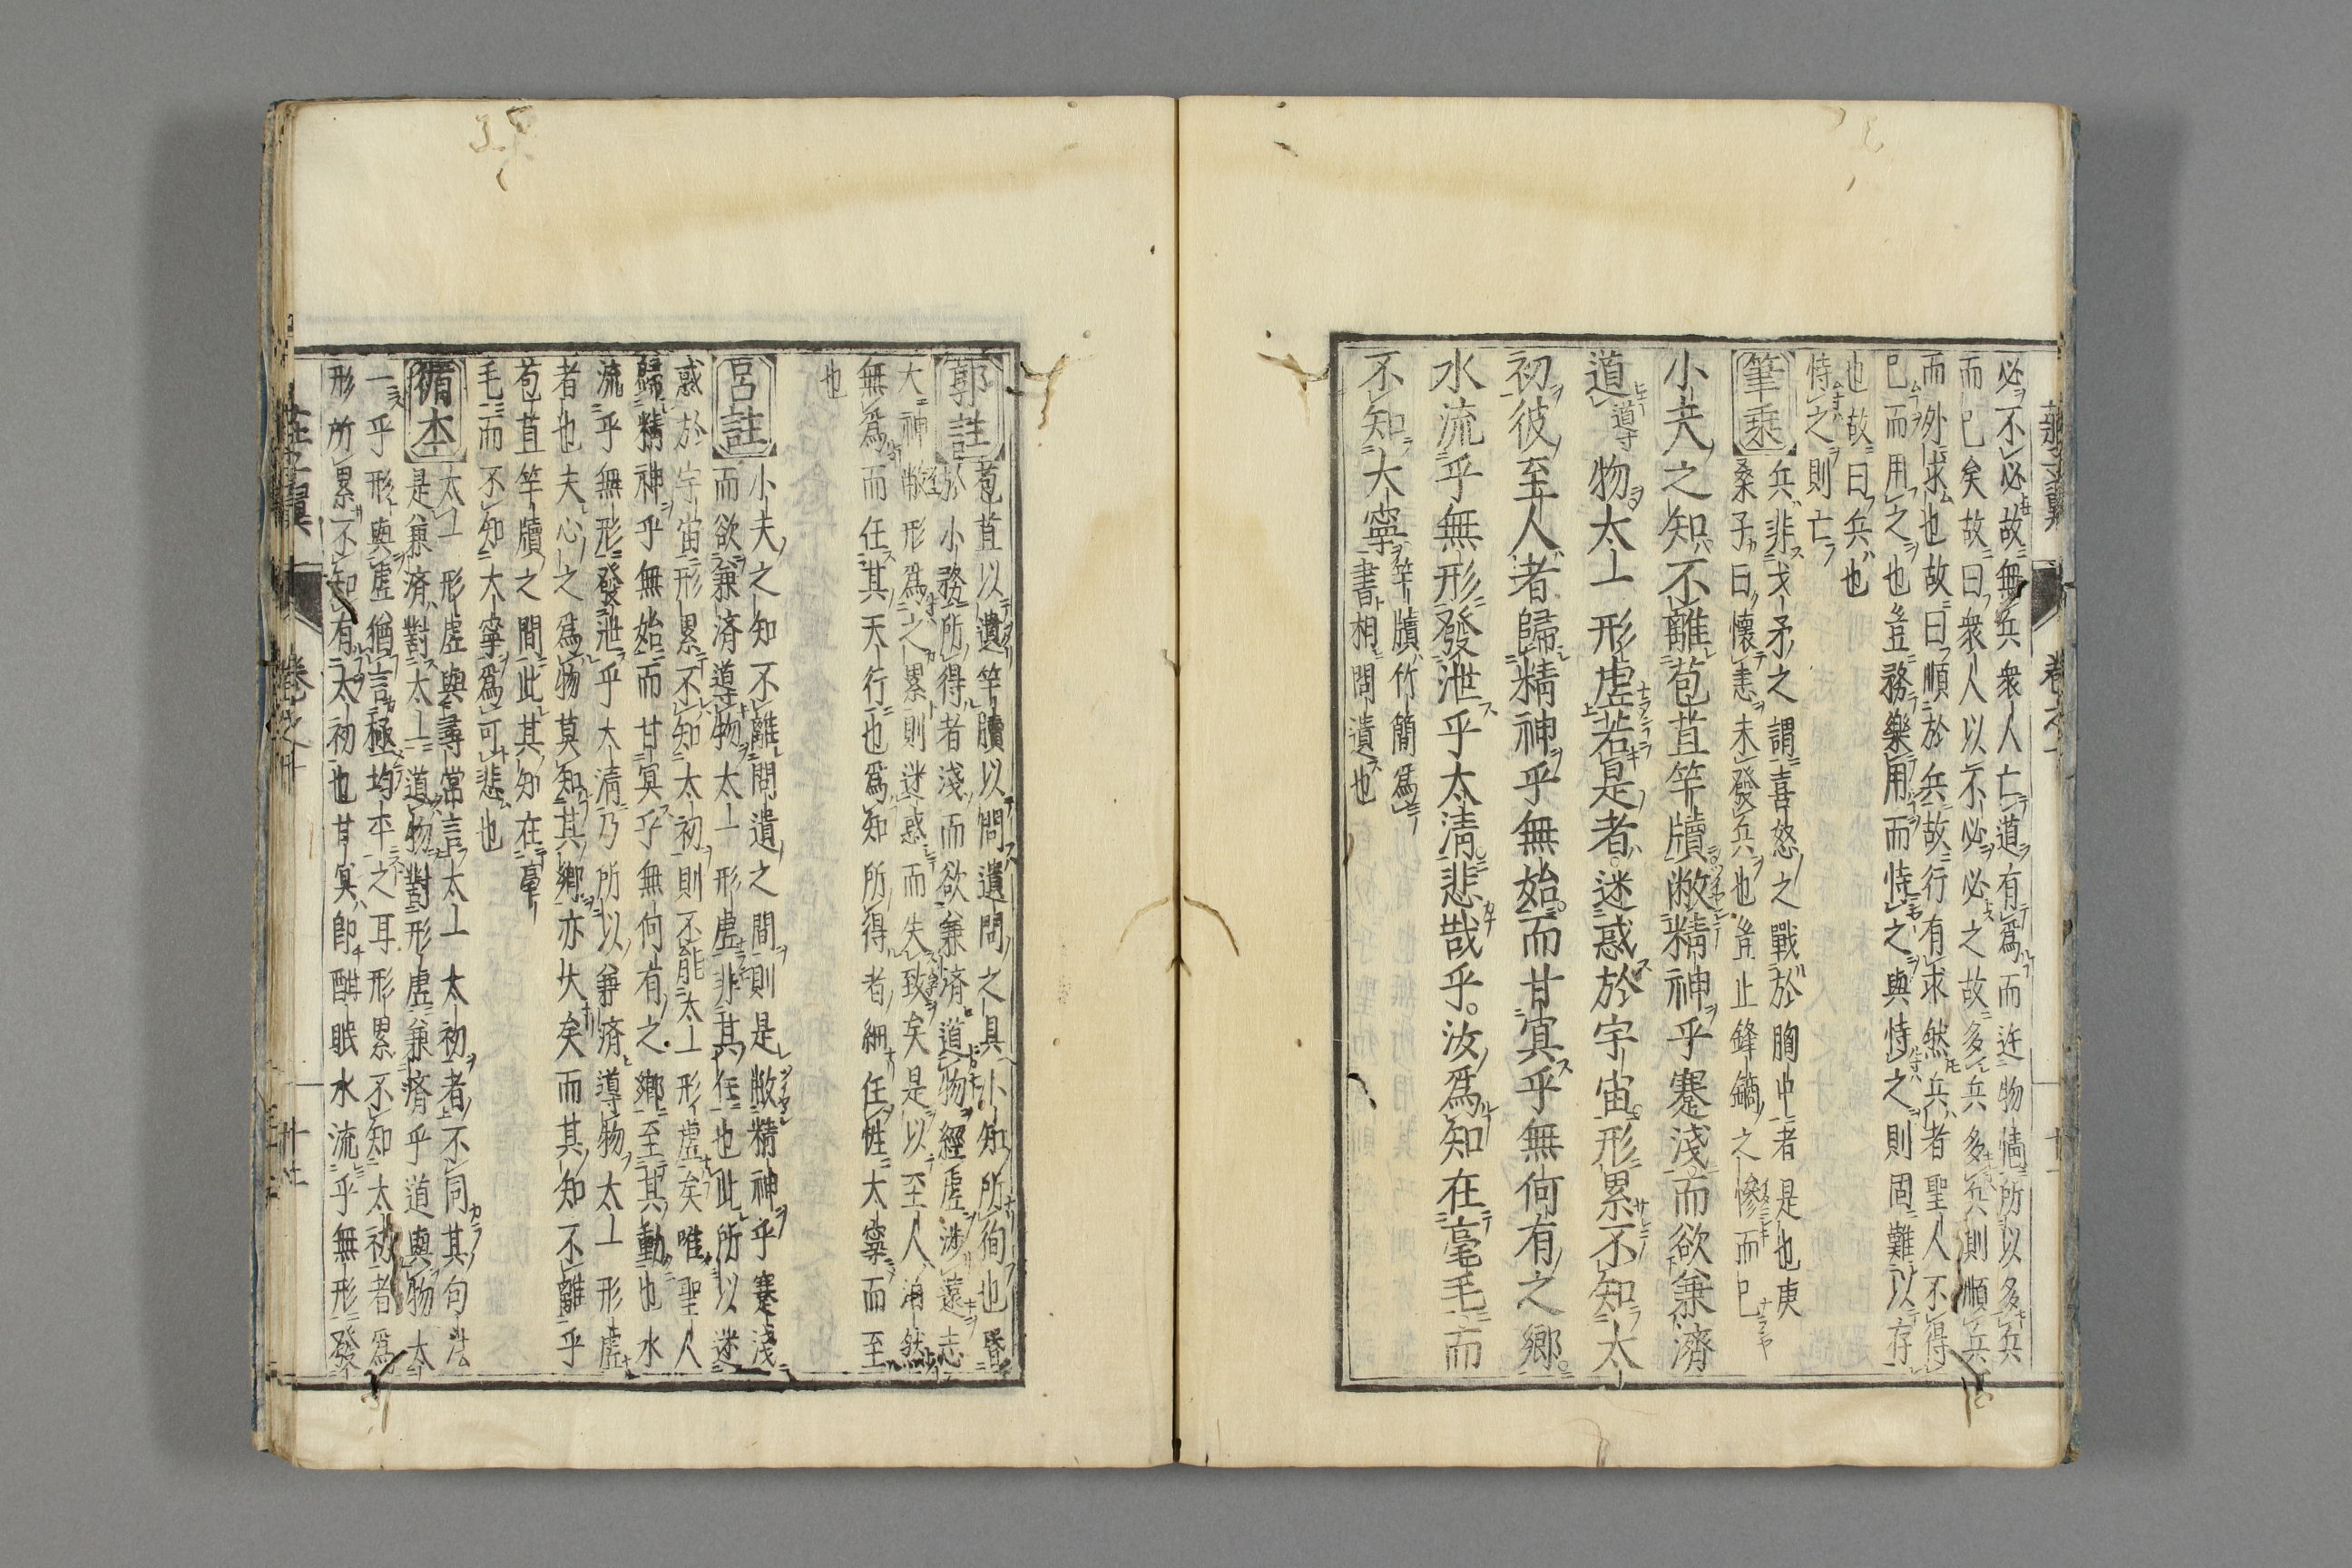 必不必故無兵衆人亡道有爲而近物情所以多兵
而已矣故曰衆人以不必必之故多兵多兵則順兵
而外求也故曰順於兵故行有求然兵者聖人不得
已而用之也豈務樂用而恃之與恃之則固難以存
也故曰兵也
恃之則亡
筆乘
兵非戈矛之謂喜怒之戰於胸中者是也庚
桑子曰懷恚未發兵也豈止鋒鏑之慘而已
小夫之知不離苞苴竿牘敝精神乎蹇淺而欲兼濟
道導物太一形虛若是者迷惑於宇宙形累不知太
初彼至人者歸精神乎無始而甘冥乎無何有之鄉
水流乎無形發泄乎太清悲哉乎汝爲知在毫毛而
不知大寧
竿牘竹簡爲
書相問遺也
郭註
苞苴以遺竿牘以問遺問之具小知所徇也昏
於小務所得者淺而欲兼濟道物經虛涉遠志
大神敝形爲之累則迷惑而失致矣是以至人泊然
無爲而任其天行也爲知所得者細任性大寧而至
也
呂註
小夫之知不離問遺之間則是敝精神乎蹇淺
而欲兼濟導物太一形虛非其任也此所以迷
惑於宇宙形累不知太初則不能太一形虛矣唯聖人
歸精神乎無始而甘冥乎無何有之鄉至其動也水
流乎無形發泄乎大清乃所以兼濟導物太一形虛
者也夫心之爲物莫知其鄉亦大矣而其知不離乎
苞苴竿牘之間此其知在毫
毛而不知大寧爲可悲也
循本
太一形虛與尋常言太一太初者不同其句法
是兼濟對太一道物對形虛兼濟乎道與物太
一乎形與虛猶言極均平之耳形累不知太初者爲
形所累不知有太初也甘冥即酣眠水流乎無形發
莊子翼 卷之十